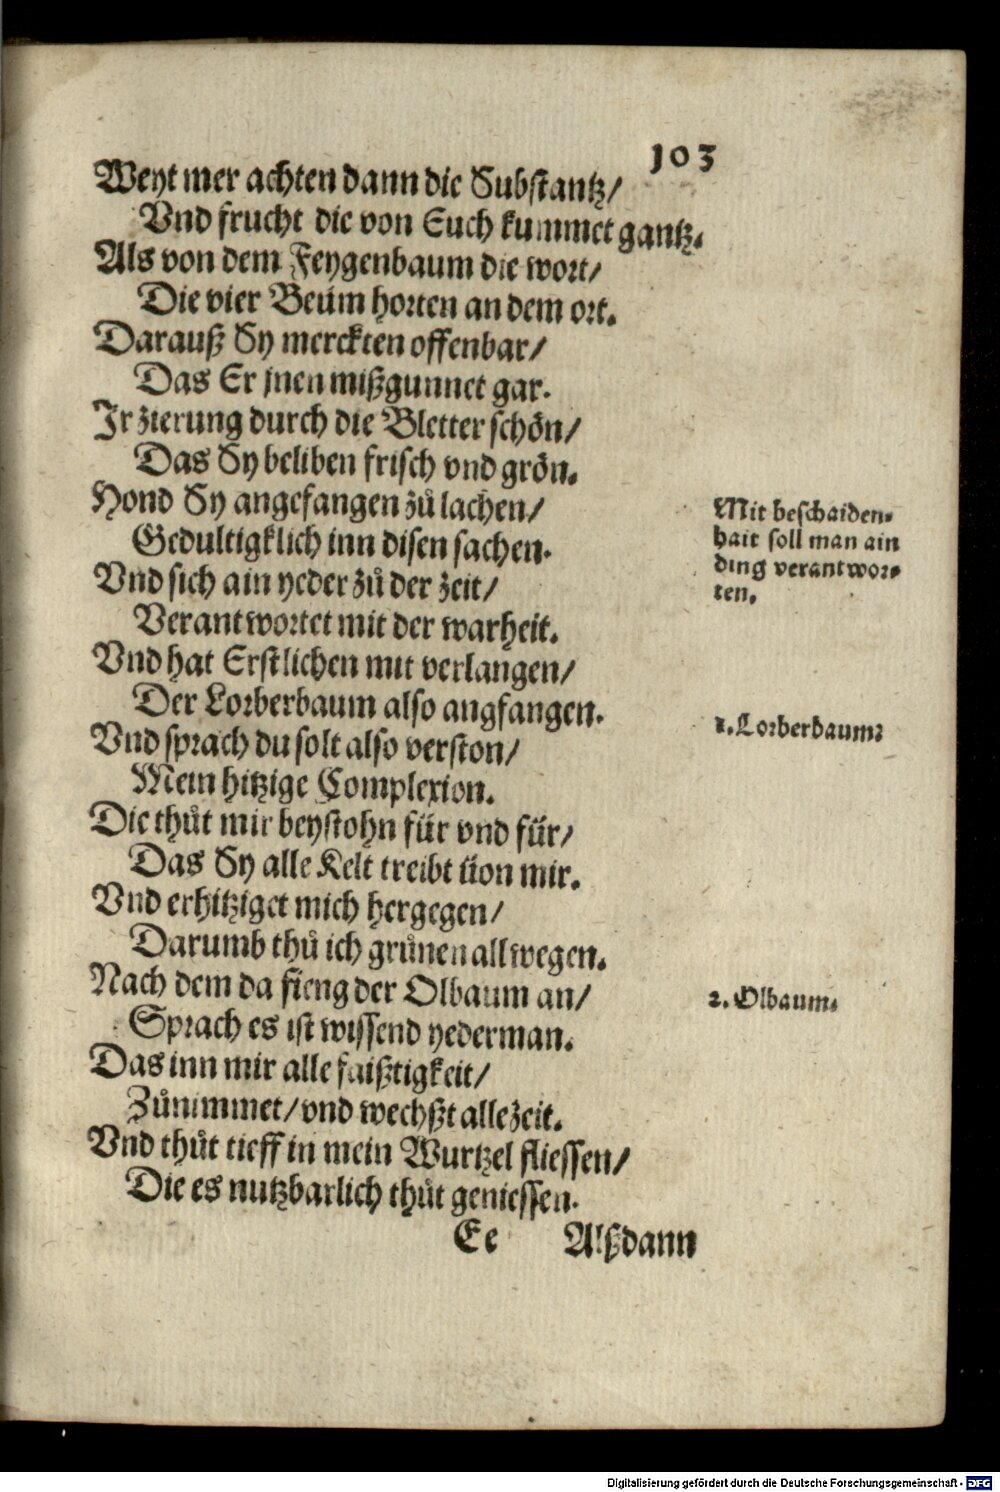 103
Weyt mer achten dann die Substantz/
Vnd frucht die von Euch kummet gantz.
Als von dem Feygenbaum die wort/
Die vier Beüm horten an dem ort.
Darauß Sy merckten offenbar/
Das Er jnen mißgunnet gar.
Jr zierung durch die Bletter schön/
Das Sy beliben frisch vnd grön.
Hond Sy angefangen zů lachen/
Gedultigklich inn disen sachen.
Vnd sich ain yeder zů der zeit/
Verantwortet mit der warheit.
Vnd hat Erstlichen mit verlangen/
Der Lorberbaum also angfangen.
Vnd sprach du solt also verston/
Mein hitzige Complexion.
Die thůt mir beystohn für vnd für/
Das Sy alle Kelt treibt üon mir.
Vnd erhitziget mich hergegen/
Darumb thů ich grůnen allwegen.
Nach dem da fieng der Olbaum an/
Sprach es ist wissend yederman.
Das inn mir alle faißtigkeit/
Zůnimmet/vnd wechßt allezeit.
Vnd thůt tieff in mein Wurtzel fliessen/
Die es nutzbarlich thůt geniessen.
Ee Alßdann
Mit beschaiden-
hait soll man ain
ding verantwor-
ten.
1. Lorberbaum:
2. Olbaum.
Digitalisierung gefördert durch die Deutsche Forschungsgemeinschaft - DFG